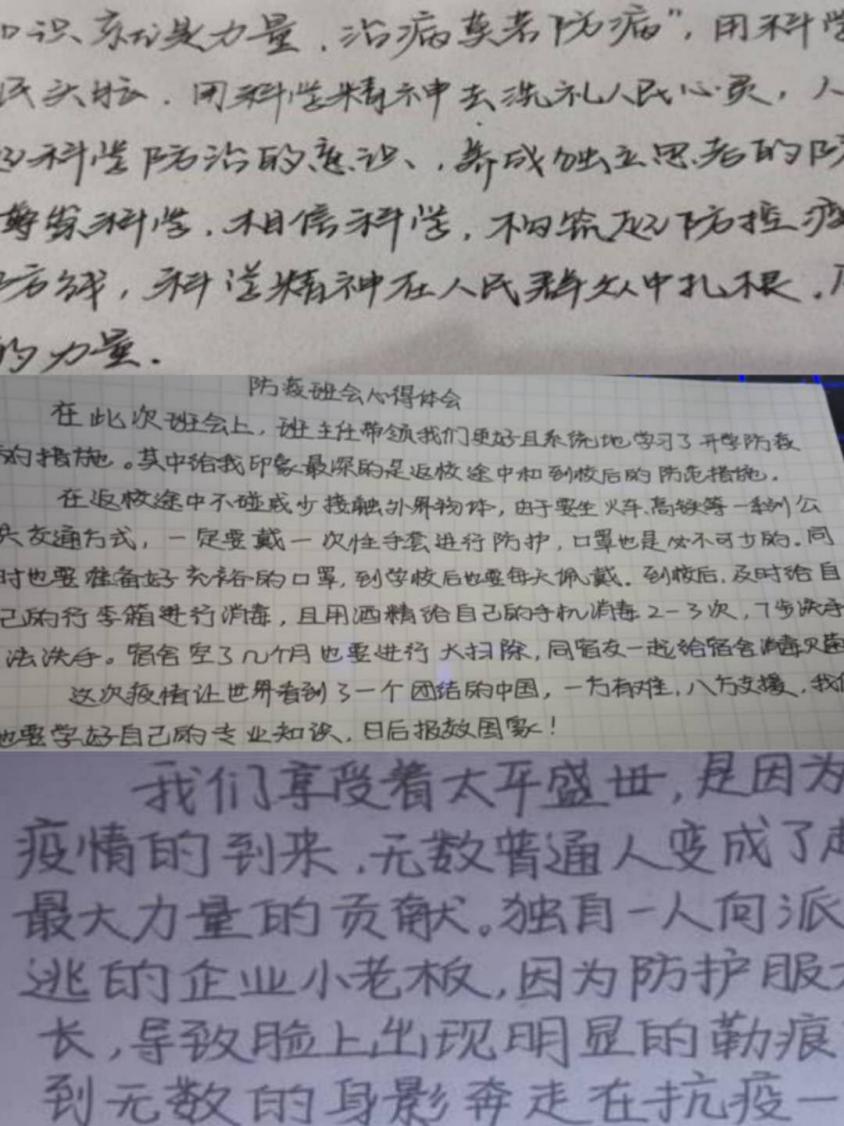 识就是力量,治病莫若防病",用科学
民头脑,用科学精神去洗礼人民心灵,人
科学防治的意识、,养成独立思考的防
科学,相信科学,构筑起防控疫
防线,科学精神在人民群众中扎根。
的力量.
防疫班会心得体会
在此次班会上,班主任带领我们更好且系统地学习了开学防疫
的措施。其中给我印象最深的是返校途中和到校后的防范措施.
在返校途中不碰或少接触外界物体,由于要坐火车、高铁等一系列公
共交通方式,一定要戴一次性手套进行防护,口罩也是必不可少的.同
时也要准备好充裕的口罩,到学校后也要每天佩戴.到校后,及时给自
己的行李箱进行消毒,且用酒精给自己的手机消毒2-3次,7步洗手
法洗手。宿舍空了几个月也要进行大扫除,同宿友一起给宿舍消毒灭菌
这次疫情让世界看到了一个团结的中国,一方有难,八方支援,我们
也要学好自己的专业知识,日后报效国家!
我们享受着太平盛世,是因为
疫情的到来,无数普通人变成了
最大力量的贡献。独自一人向派
逃的企业小老板,因为防护服
长,导致脸上出现明显的勒痕
到无数的身影奔走在抗疫一